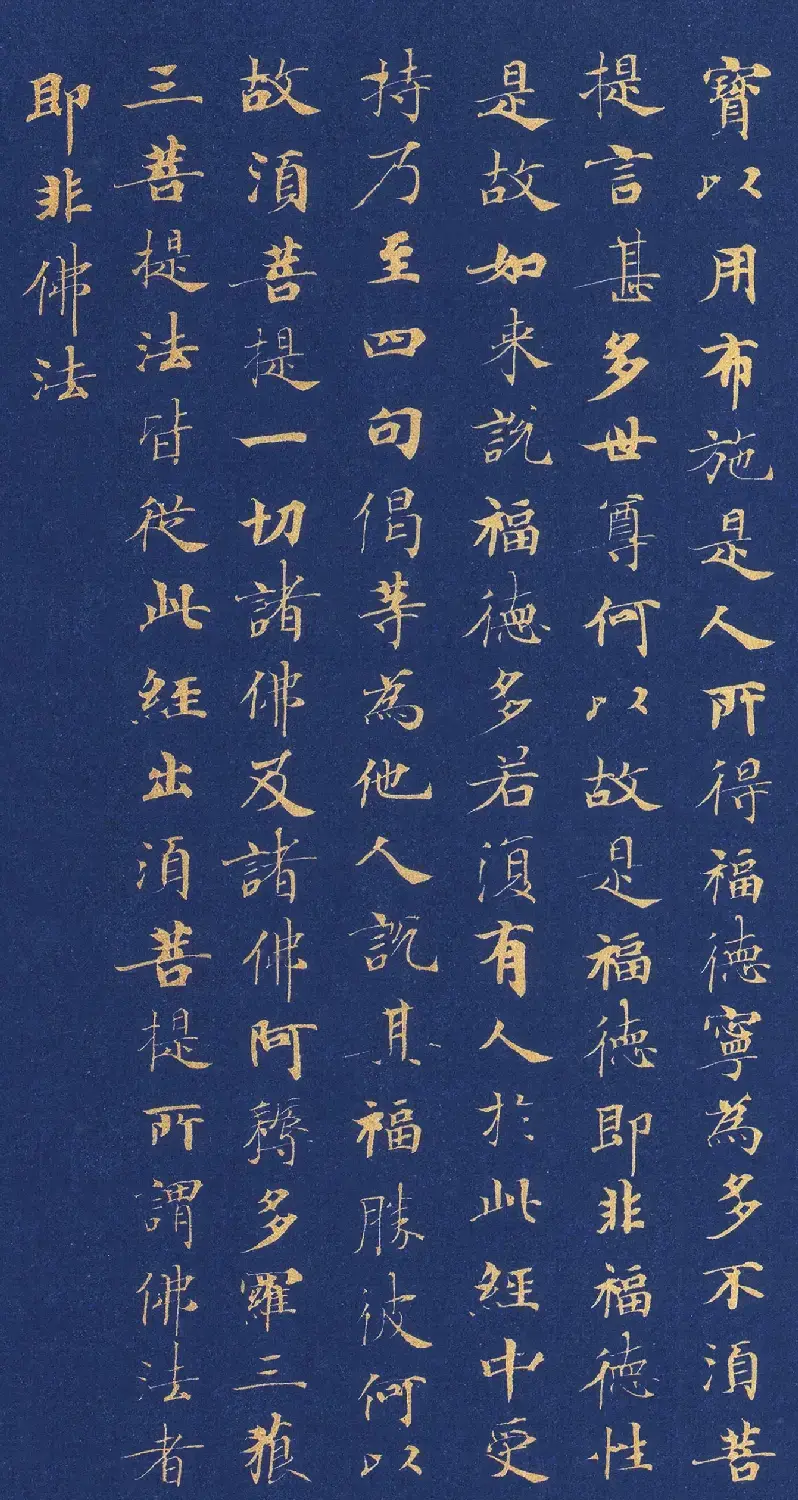 寶以用布施是人所得福德寧為多不須菩
提言甚多世尊何以故是福德即非福德性
是故如来說福德多若復有人於此經中受
持乃至四句偈等為他人說其福勝彼何以
故須菩提一切諸佛及諸佛阿耨多羅三藐
三菩提法皆從此經出須菩提所謂佛法者
即非佛法